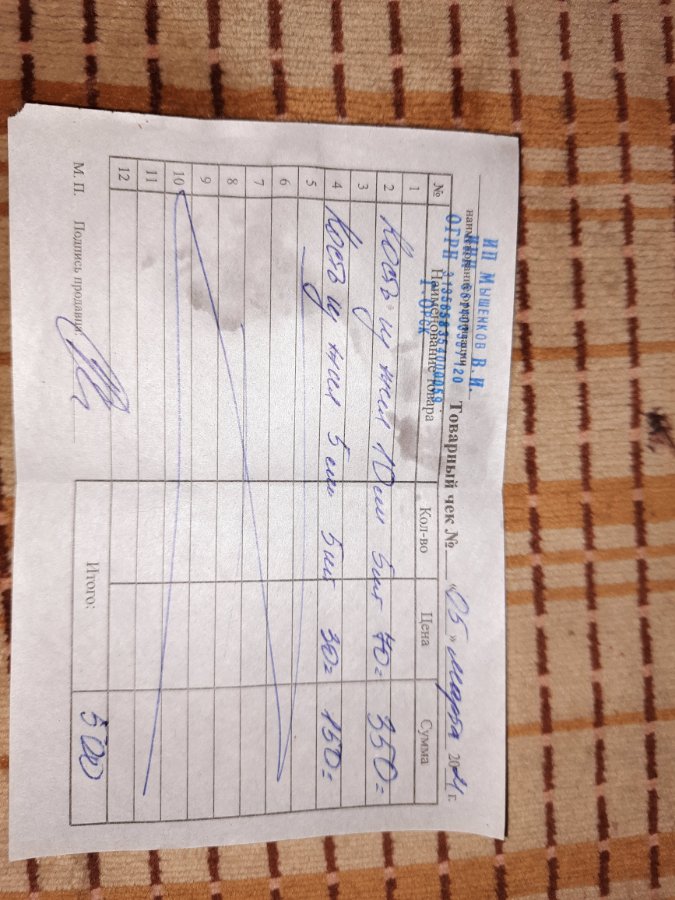 ИП Мышенков В.И.
наименование организации
ОГРН 313565815400059
Г ОРСК
Товарный чек № « 05 » марта 20 21 г.
№ Наименование товара Кол-во Цена Сумма
1
2 Кость из жил 10 см 5 шт 70= 350=
3
4 Кость из жил 5 см 5 шт 30= 150=
5
6
7
8
9
10
11
12
Итого: 500
М. П. Подпись продавца: